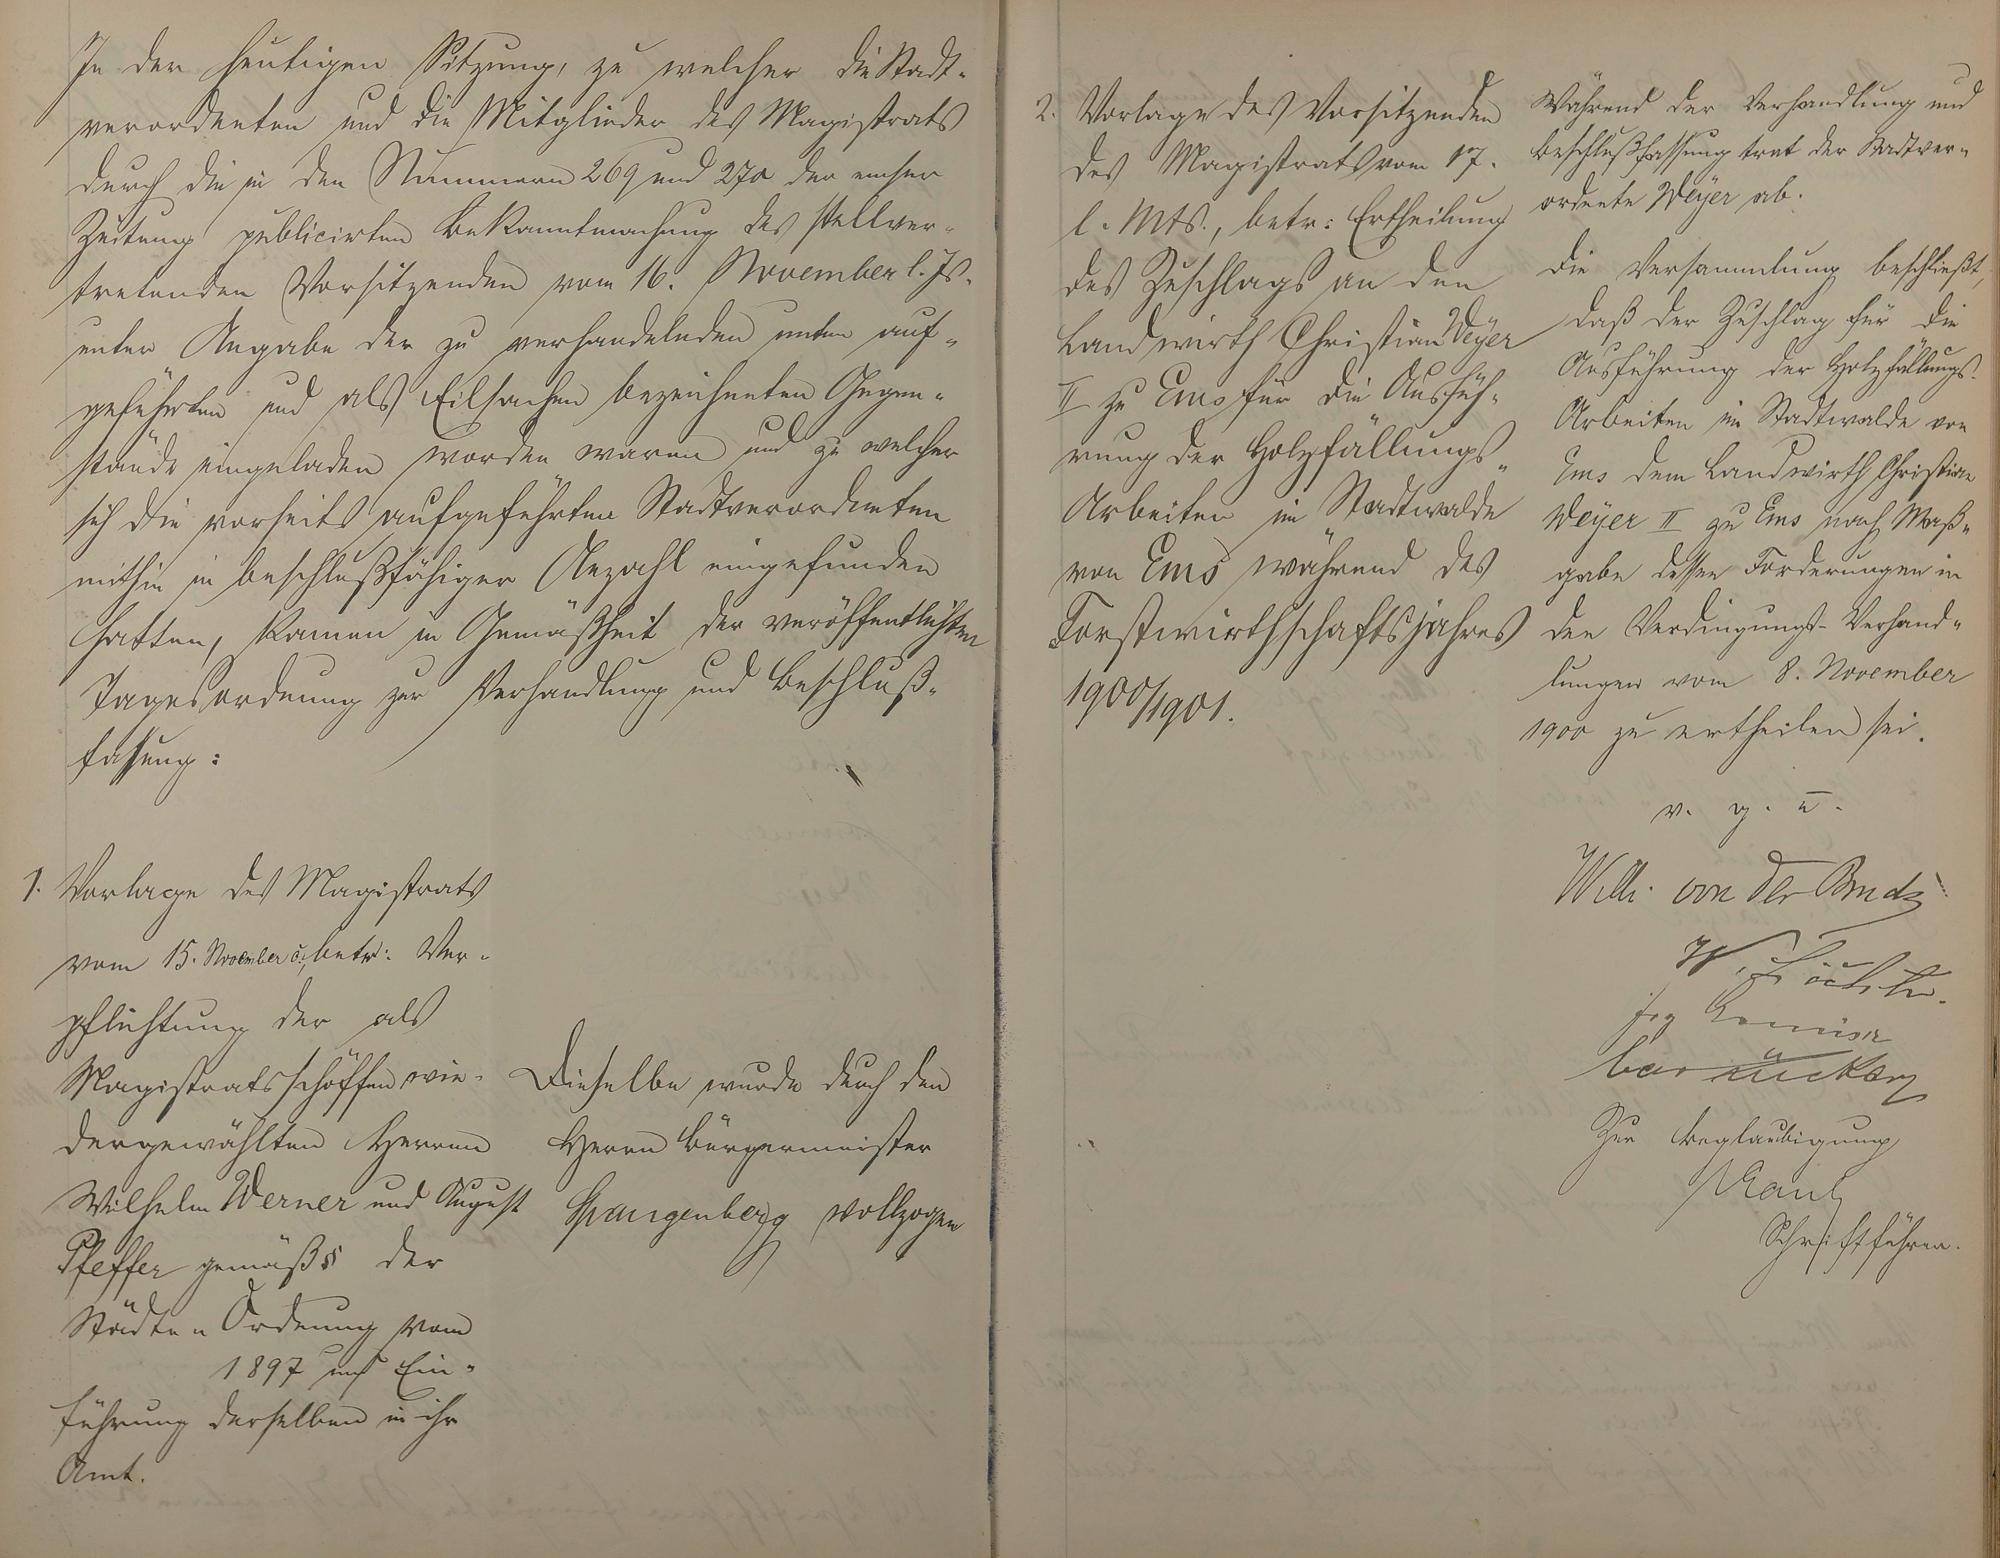 In der heutigen Sitzung, zu welcher die Stadt-
verordneten und die Mitglieder des Magistrats
durch die in den Nummern 269 und 270 der emser
Zeitung publicirten Bekanntmachung des stellver-
tretenden Vorsitzenden vom 16. November l. Js.
unter Angabe der zu verhandelnden unten auf-
geführten und als Eilsachen bezeichneten Gegen-
stände eingeladen worden waren und zu welcher
sich die vorseits aufgeführten Stadtverordneten
mithin in beschlußfähiger Anzahl eingefunden
hatten, kamen in Gemäßheit der veröffentlichten
Tagesordnung zur Verhandlung und Beschluß-
fassung:
1. Vorlage des Magistrats
vom 15. November c., betr: Ver-
pflichtung der als
Magistratsschöffen wie-
dergewählten Herren
Wilhelm Werner und August
Pfeffer gemäß § der
Städte-Ordnung vom
1897 und Ein-
führung derselben in ihr
Amt.
Dieselbe wurde durch den
Herrn Bürgermeister
Spangenberg vollzogen
2. Vorlage des Vorsitzenden
des Magistrats vom 17.
l. Mts., betr: Ertheilung
des Zuschlags an den
Landwirth Christian Weyer
II zu Ems für die Ausfüh-
rung der Holzfällungs-
Arbeiten im Stadtwalde
von Ems während des
Forstwirthschaftsjahres
1900/1901.
Während der Verhandlung und
Beschlußfassung trat der Stadtver-
ordnete Weyer ab.
Die Versammlung beschließt,
daß der Zuschlag für die
Ausführung der Holzfällungs-
Arbeiten im Stadtwalde von
Ems dem Landwirth Christian
Weyer II zu Ems nach Maß-
gabe dessen Forderungen in
den Verdingungs-Verhand-
lungen vom 8. November
1900 zu ertheilen sei.
v. g. u.
Willi von der
W.
Zur Beglaubigung
Schriftführer.